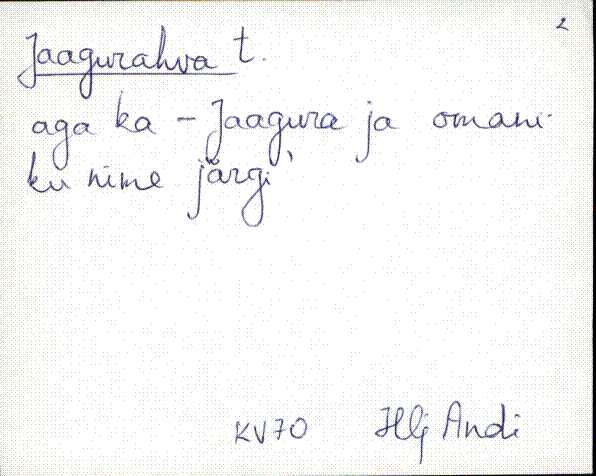 2
Jaagurahva t.
aga ka - Jaagura ja omani-
ku nime järgi
KV70 Hlj Andi